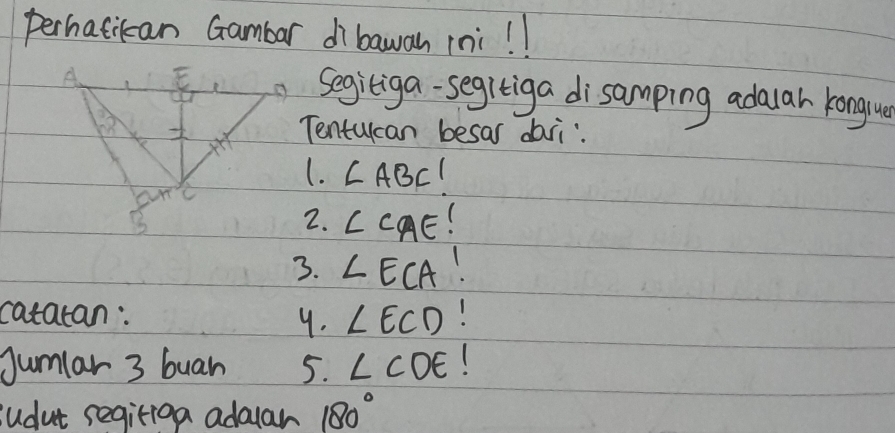 Perhatikan Gambar dibawah ini!!
A E D
Segitiga-segitiga disamping adalah kongruen
Tentukan besar dari:
1. ∠ABC!
B C
2. ∠CAE!
3. ∠ECA!
catatan:
4. ∠ECD!
Jumlah 3 buah
5. ∠CDE!
sudut segitiga adalah 180°